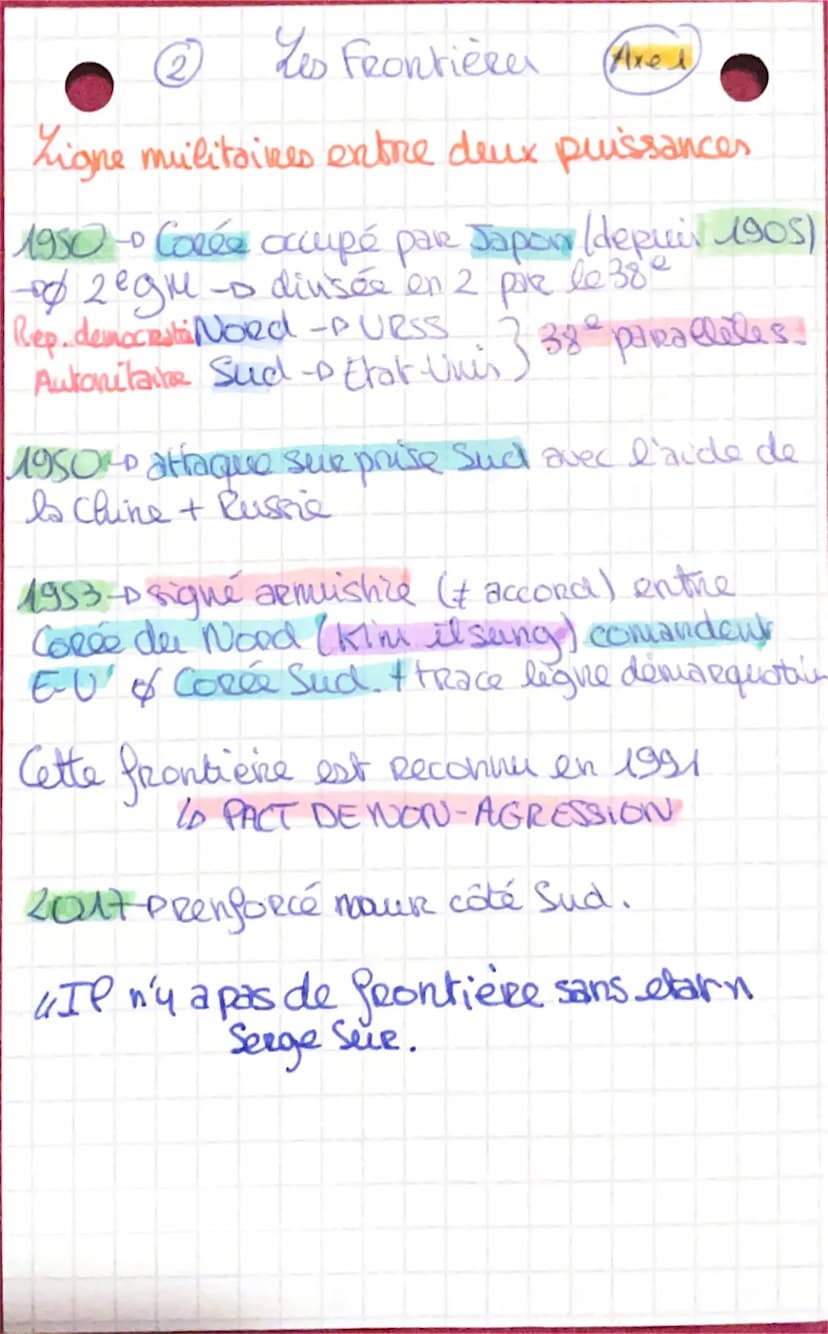 ② Les Frontières Axe 1
Ligne militaires entre deux puissances
1950 → Corée occupé par Japon (depuis 1905)
→ 2e gM → divisée en 2 par le 38e
Rep. democrati Nord → URSS
Autoritaire Sud → Etat-Unis } 38e parallèles.
1950 → attaque surprise Sud avec l'aide de
la Chine + Russie
1953 → signé armistie (≠ accord) entre
Corée du Nord (Kim il sung) comandeur
E-U & Corée Sud. + trace ligne démarquatain
Cette frontière est reconnu en 1991
↳ PACT DE NON-AGRESSION
2017 → renforcé maur côté Sud.
"Il n'y a pas de frontière sans etat"
Serge Sur.